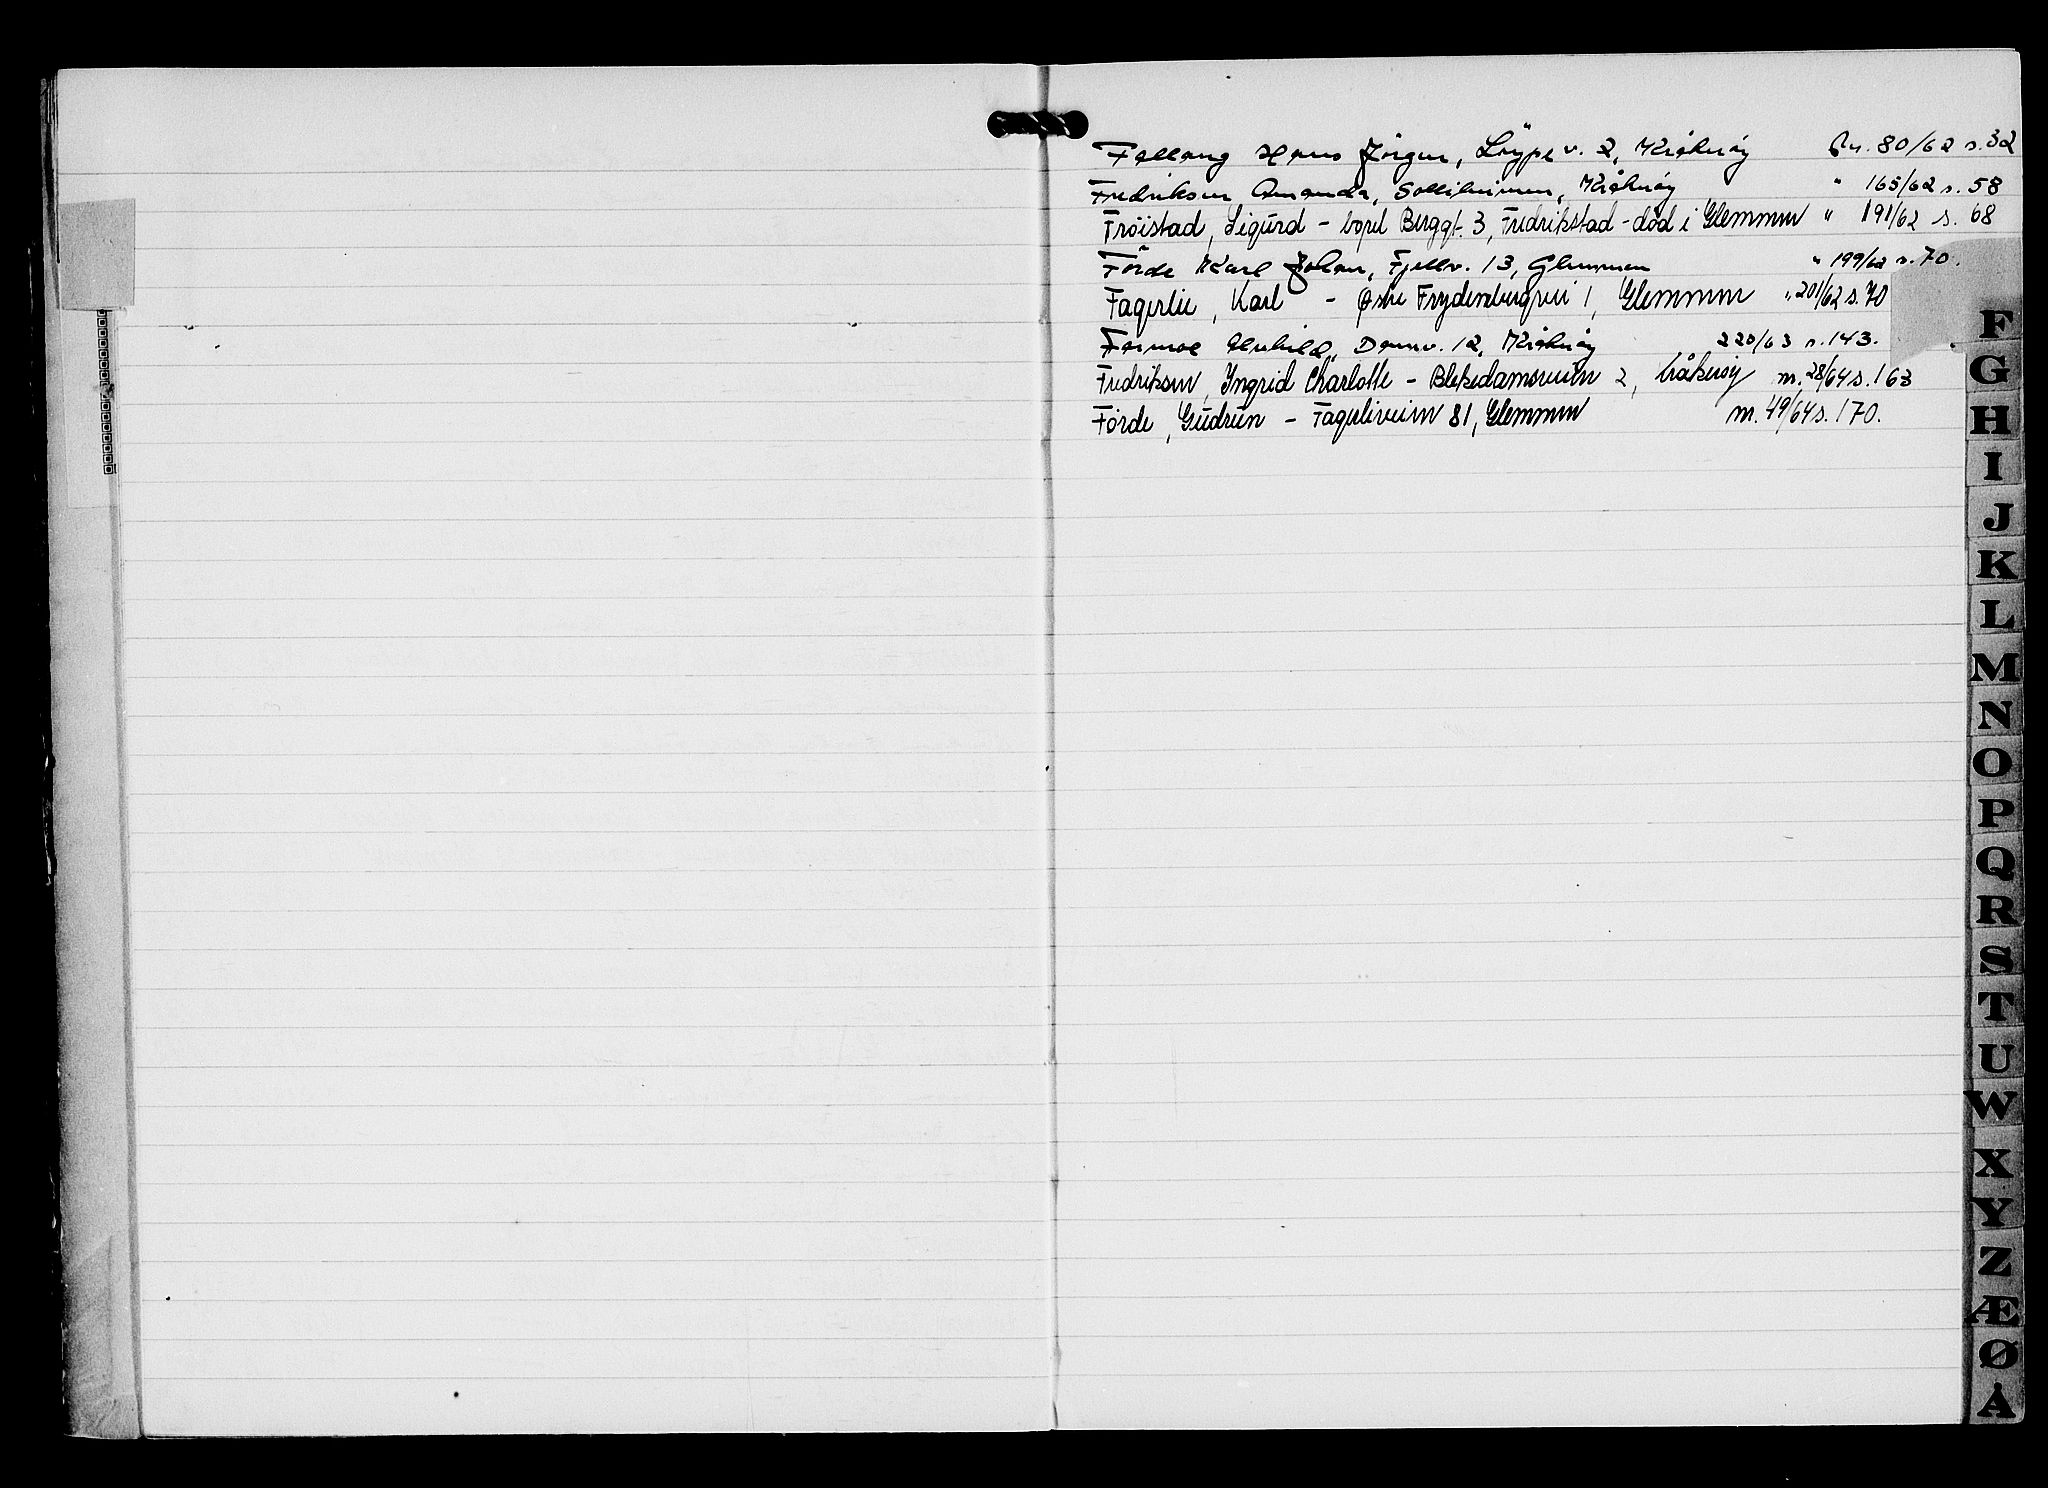 Fallang Hans Jörgen, Löype v. 2, Kråkeröy Bn. 80/62 s. 32
Fredriksen Amanda, Solliheimen, Kråkeröy " 165/62 s. 58
Frøistad, Sigurd - bopel Berggt. 3, Fredrikstad - død i Glemmen " 191/62 s. 68
Förde Karl Johan, Fjellv. 13, Glemmen " 199/62 s. 70.
Fagerlie, Karl - Østre Frydenbergvei 1, Glemmen " 201/62 s. 70
Formoe 12, Kråkeröy 220/63 s. 143.
Fredriksen, Ingrid Charlotte - Blekedamsveien 2, Kråkerøy nr. 28/64 s. 163
Førde, Gudrun - Fagerliveien 81, Glemmen nr. 49/64 s. 170.
F
G
H
I
J
K
L
M
N
O
P
Q
R
S
T
U
W
X
Y
Z
Æ
Ø
Å